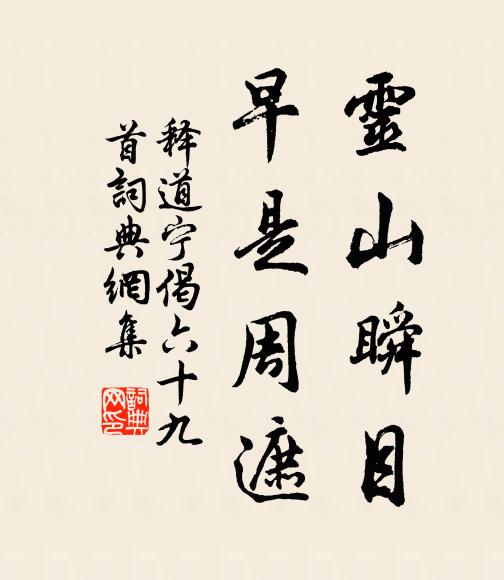 靈山瞬目
早是周遮
释道宁偈六十九
首詞典網集
詞典
网印